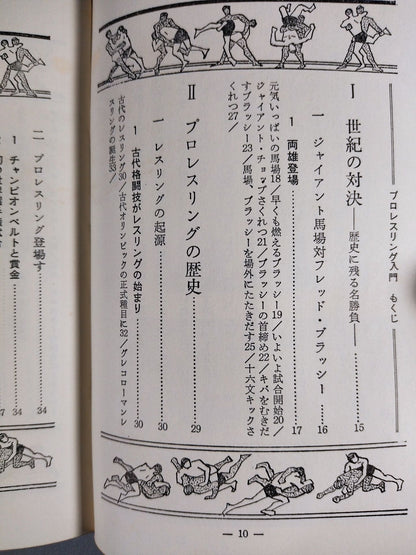 プロレスリング入門　もくじ
Ⅰ　世紀の対決――歴史に残る名勝負――……15
一　ジャイアント馬場対フレッド・ブラッシー……16
1　両雄登場……17
元気いっぱいの馬場18／早くも燃えるブラッシー19／いよいよ試合開始20／
ジャイアント・チョップさくれつ21／ブラッシーの首締め22／キバをむきだ
すブラッシー23／馬場、ブラッシーを場外にたたきだす25／十六文キックさ
くれつ27／
Ⅱ　プロレスリングの歴史……29
一　レスリングの起源……30
1　古代格闘技がレスリングの始まり……30
古代のレスリング30／古代オリンピックの正式種目に32／グレコローマンレ
スリングの誕生33／
― 10 ―
二　プロレスリング登場す……34
1　チャンピオンベルトと賞金……34